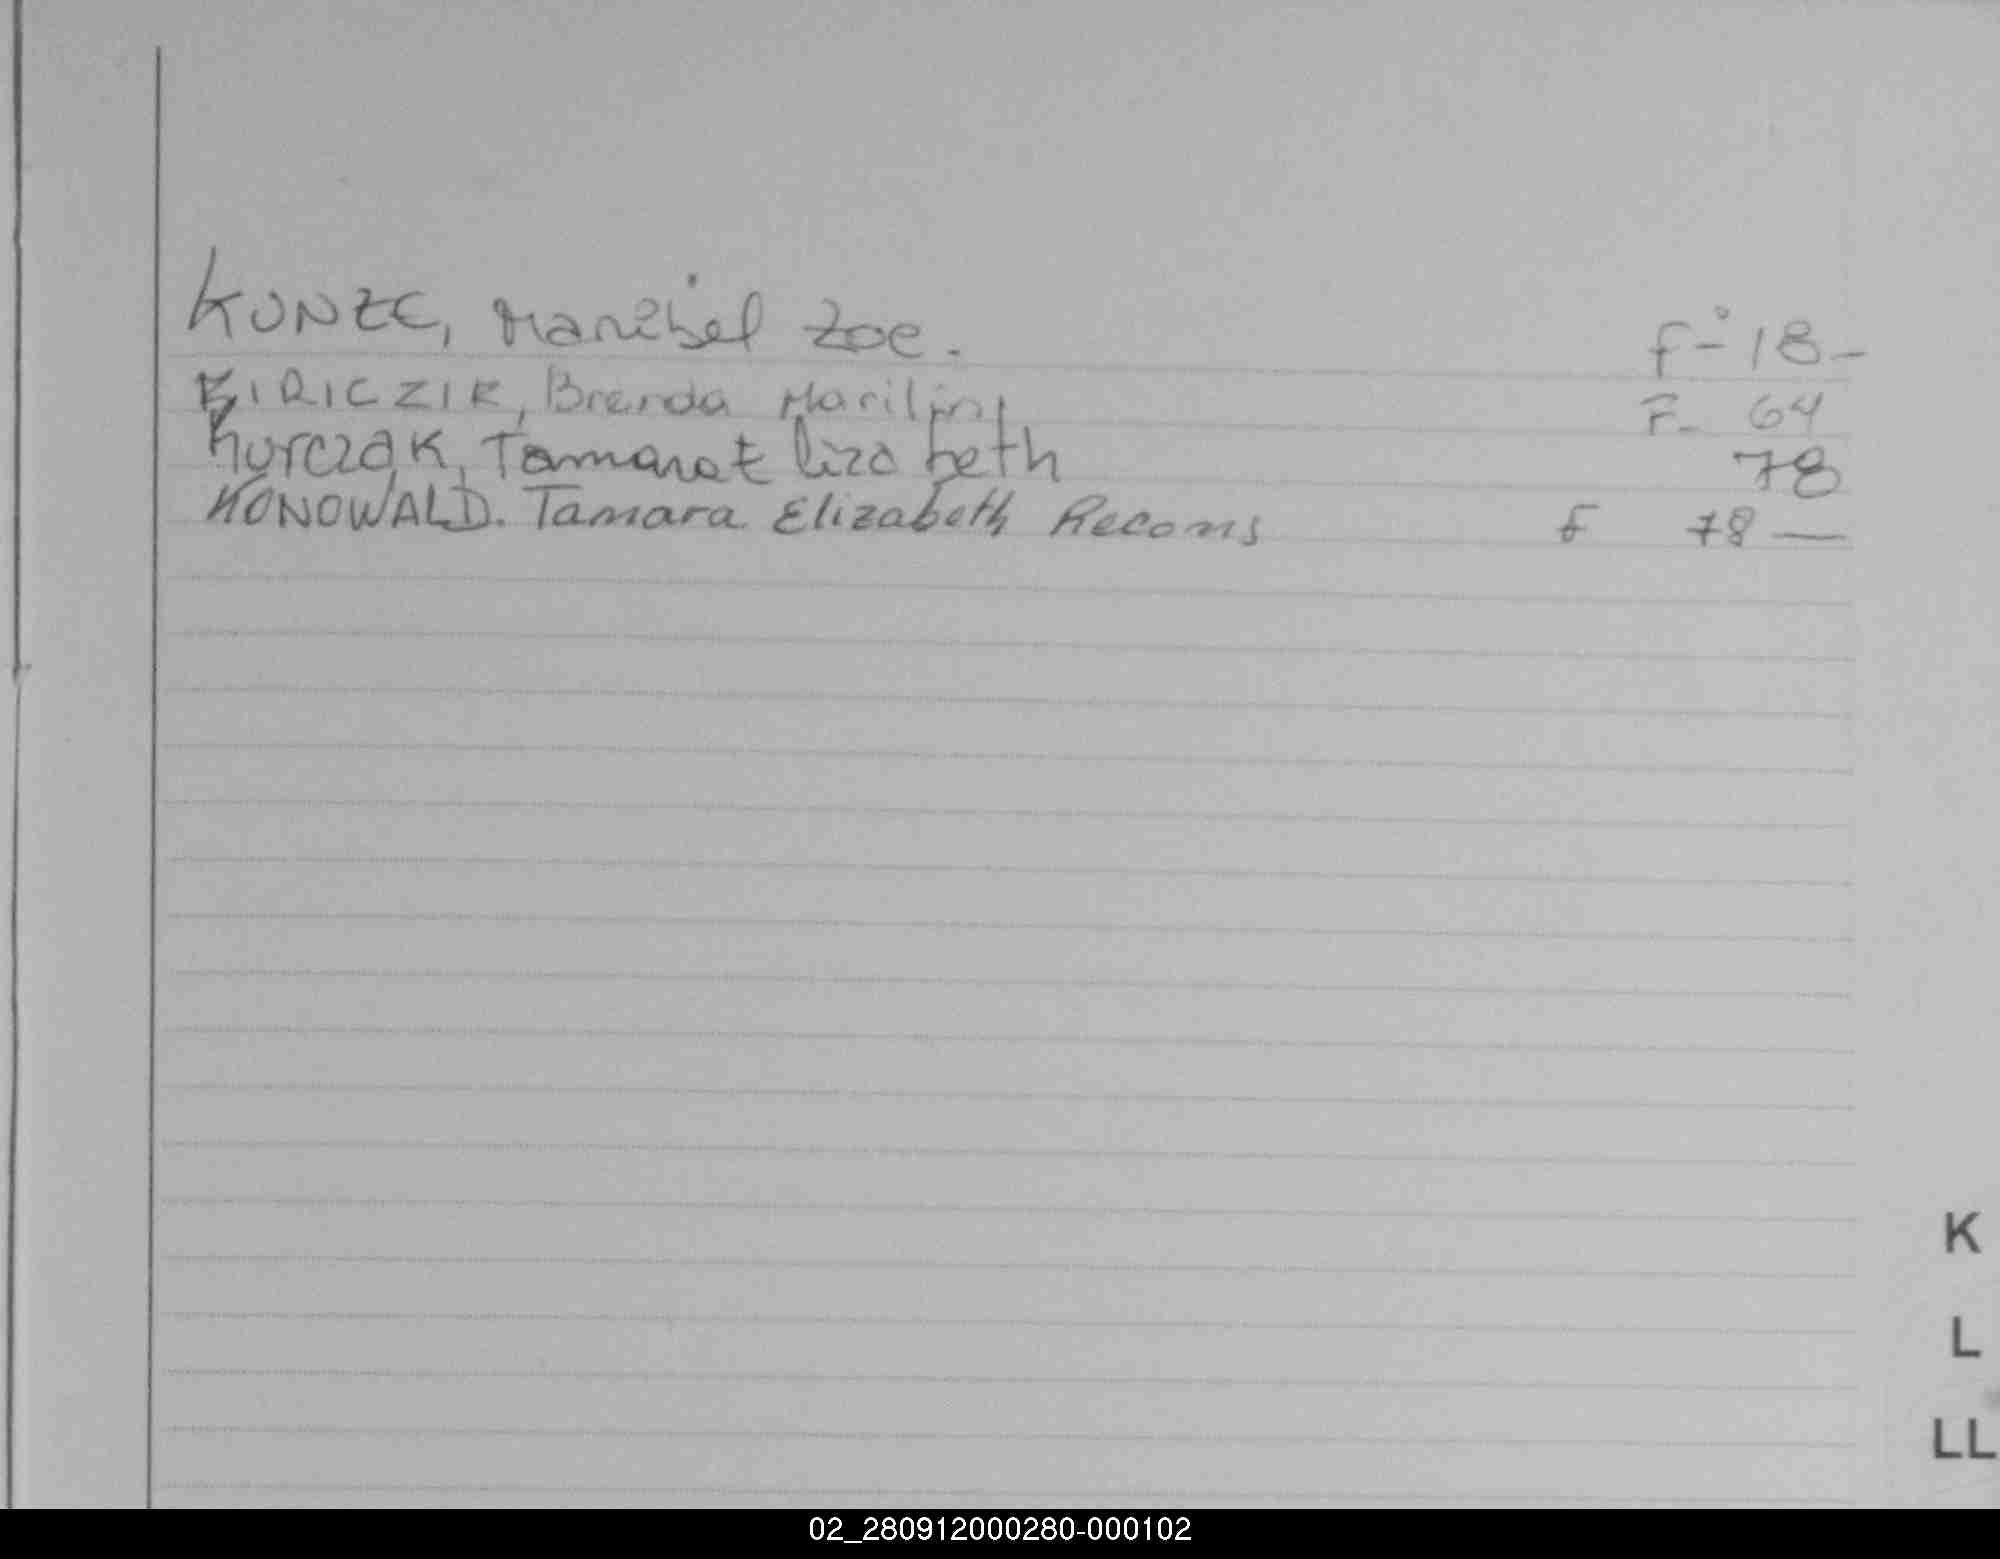 KUNZE, Maribel Zoe. F-° 18-
KIRICZIK, Brenda Marilin F- 64
Kurczak, Tamara Elizabeth 78
KONOWALD. Tamara Elizabeth Recons F 78 —
K
L
LL
02_280912000280-000102